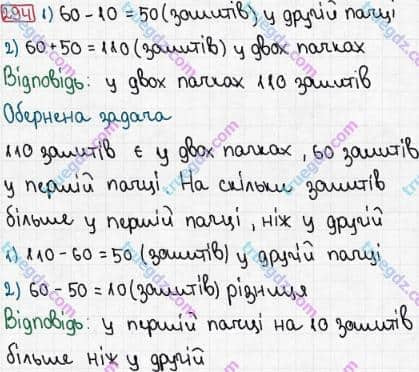 294 1) 60 - 10 = 50 (зошитів) у другій пачці
2) 60 + 50 = 110 (зошитів) у двох пачках
Відповідь: у двох пачках 110 зошитів
Обернена задача
110 зошитів є у двох пачках, 60 зошитів
у першій пачці. На скільки зошитів
більше у першій пачці, ніж у другій
1) 110 - 60 = 50 (зошитів) у другій пачці
2) 60 - 50 = 10 (зошитів) різниця
Відповідь: у першій пачці на 10 зошитів
більше ніж у другій